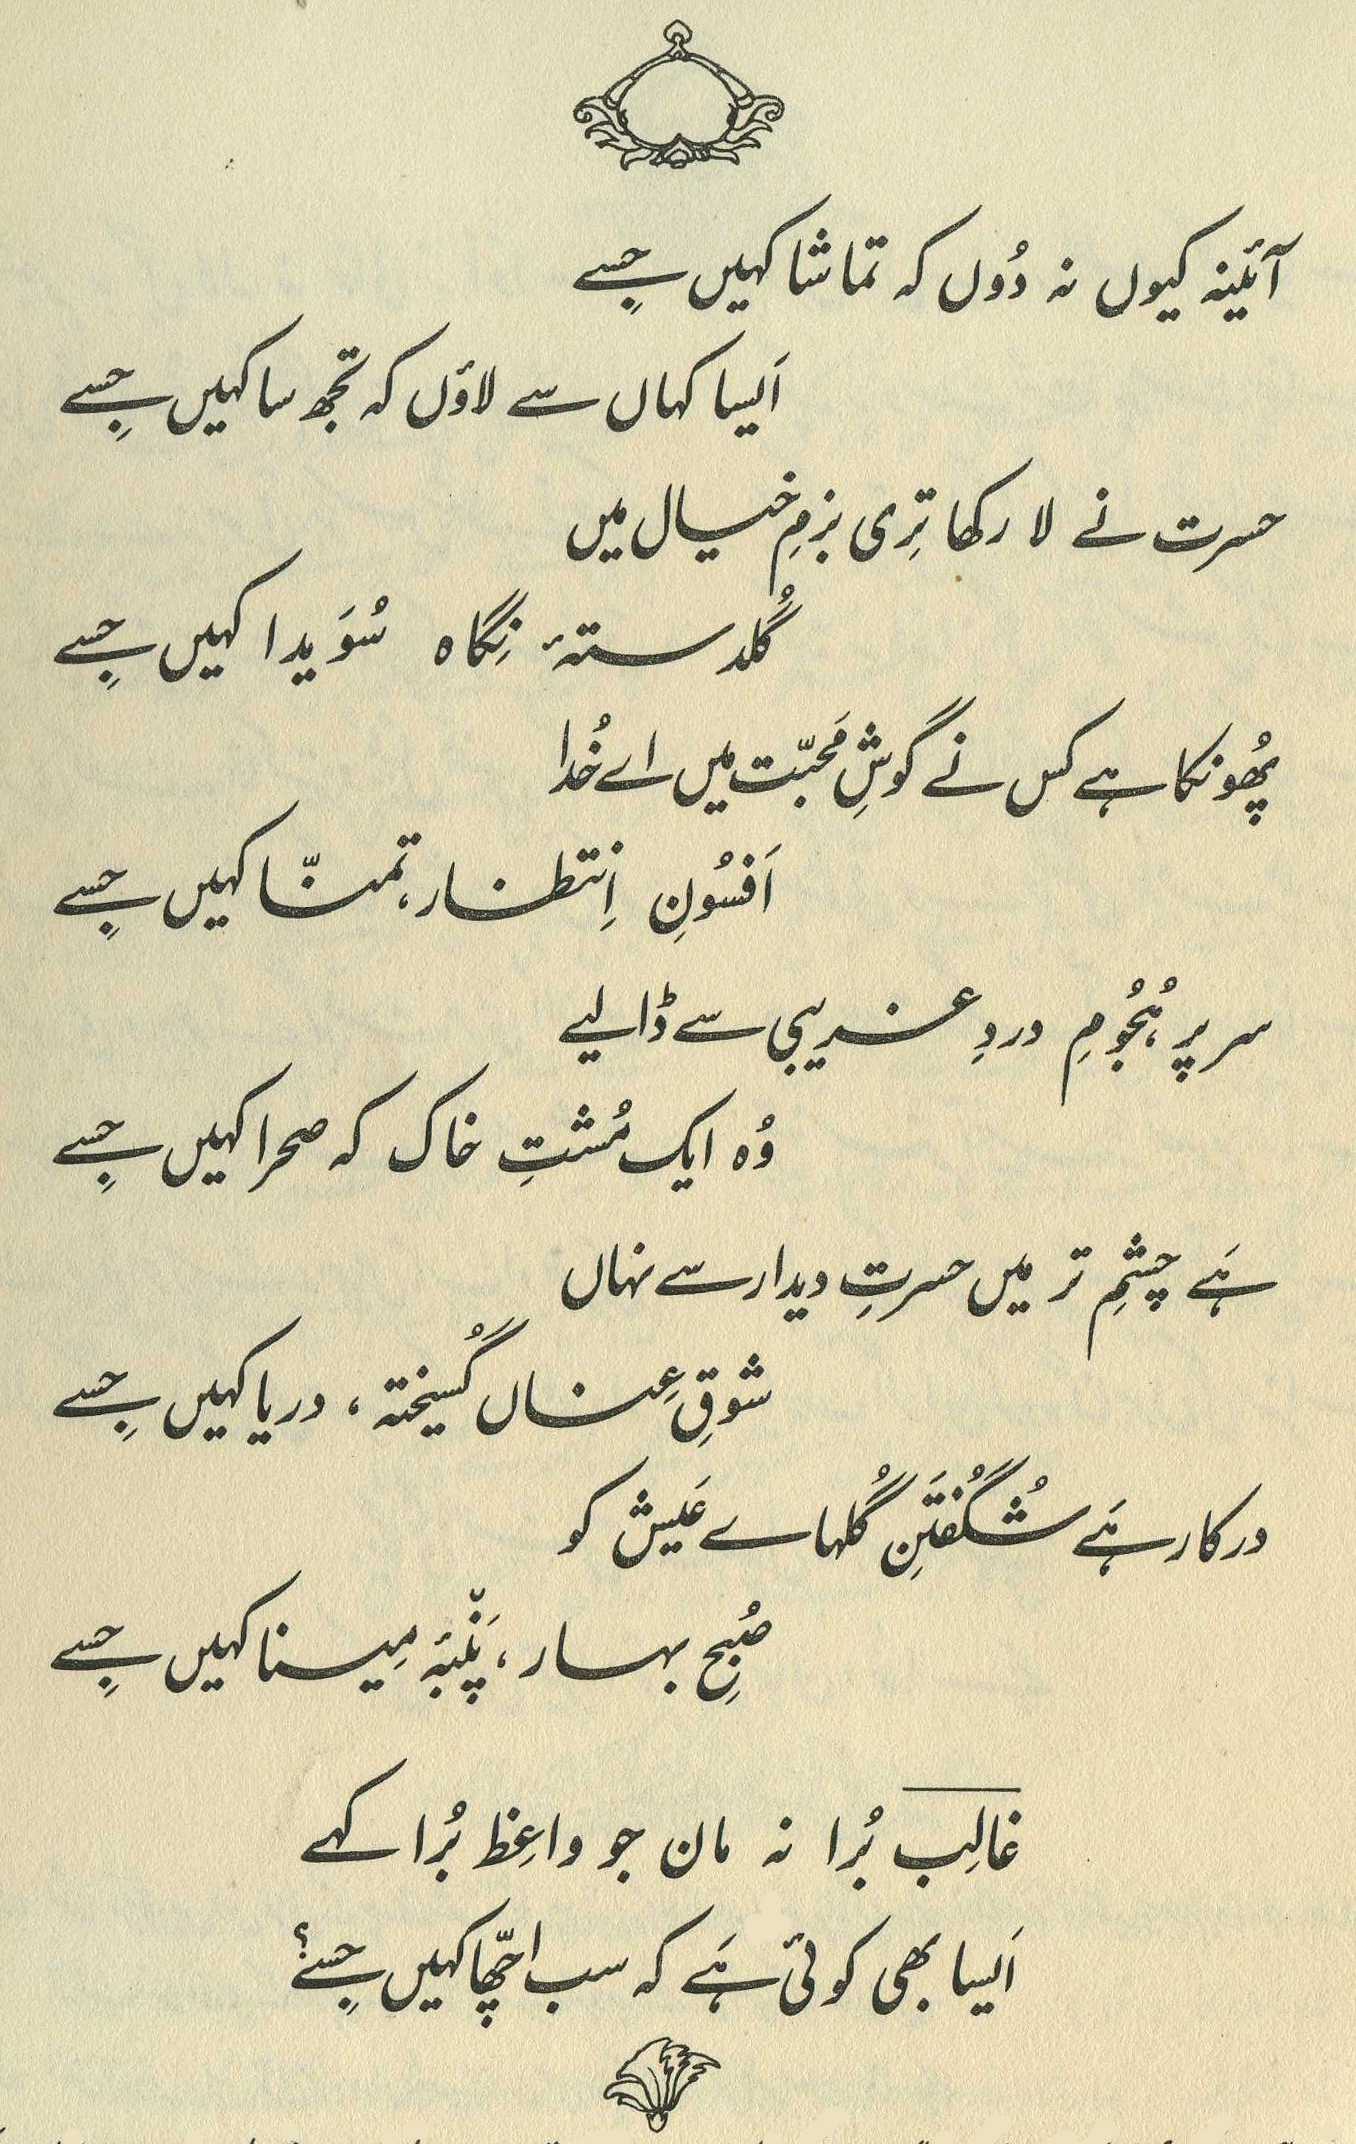 آئینہ کیوں نہ دُوں کہ تماشا کہیں جِسے
اَیسا کہاں سے لاؤں کہ تجھ سا کہیں جِسے
حسرت نے لا رکھا تِری بزمِ خیال میں
گُلدستۂ نِگاہ سُوَیدا کہیں جِسے
پُھونکا ہے کس نے گوشِ مَحبّت میں اے خُدا
اَفسُونِ اِنتظار، تمنّا کہیں جِسے
سر پر ہُجُومِ دردِ غریبی سے ڈالیے
وُہ ایک مُشتِ خاک کہ صحرا کہیں جِسے
ہَے چشمِ تر میں حسرتِ دیدار سے نہاں
شوقِ عِناں گُسیختہ، دریا کہیں جِسے
درکار ہَے شُگُفتَنِ گُلہاے عَیش کو
صُبحِ بہار، پَنْبۂ مِینا کہیں جِسے
غالِب بُرا نہ مان جو واعِظ بُرا کہے
اَیسا بھی کوئی ہَے کہ سب اچّھا کہیں جِسے؟